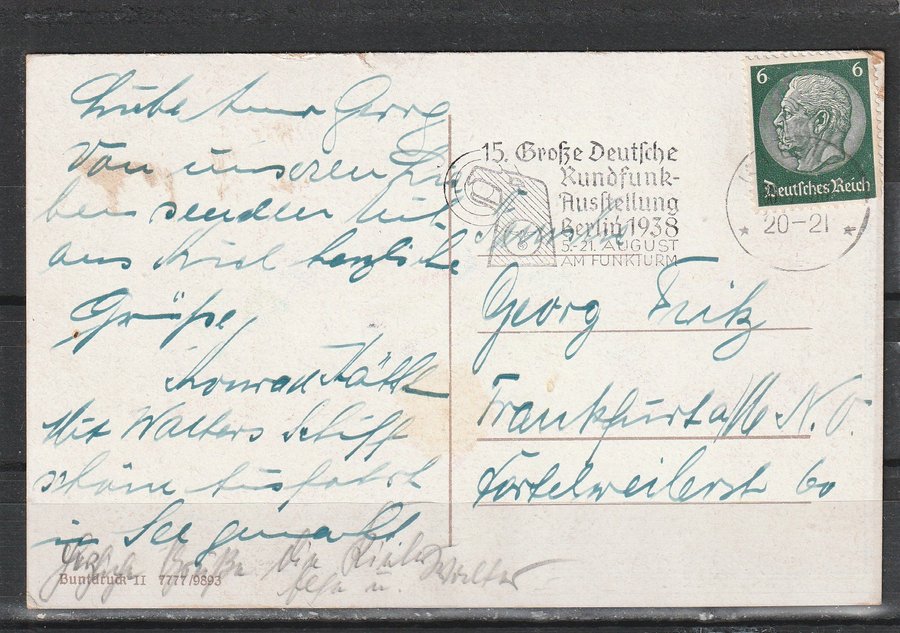 Liebe Anna Georg
Von unserem Lie
ben senden wir
aus Kiel herzliche
Grüße,
Konrad Käthe
Mit Walters Schiff
schöne Ausfahrt
in See gemacht
Herzliche Grüße die Kieler
u. Walter
Buntdruck II 7777/9893
15. Große Deutsche
Rundfunk-
Ausstellung
Berlin 1938
5.-21. AUGUST
AM FUNKTURM
6 6
Deutsches Reich
20-21
Georg Fritz
Frankfurt a/M N.O.
60